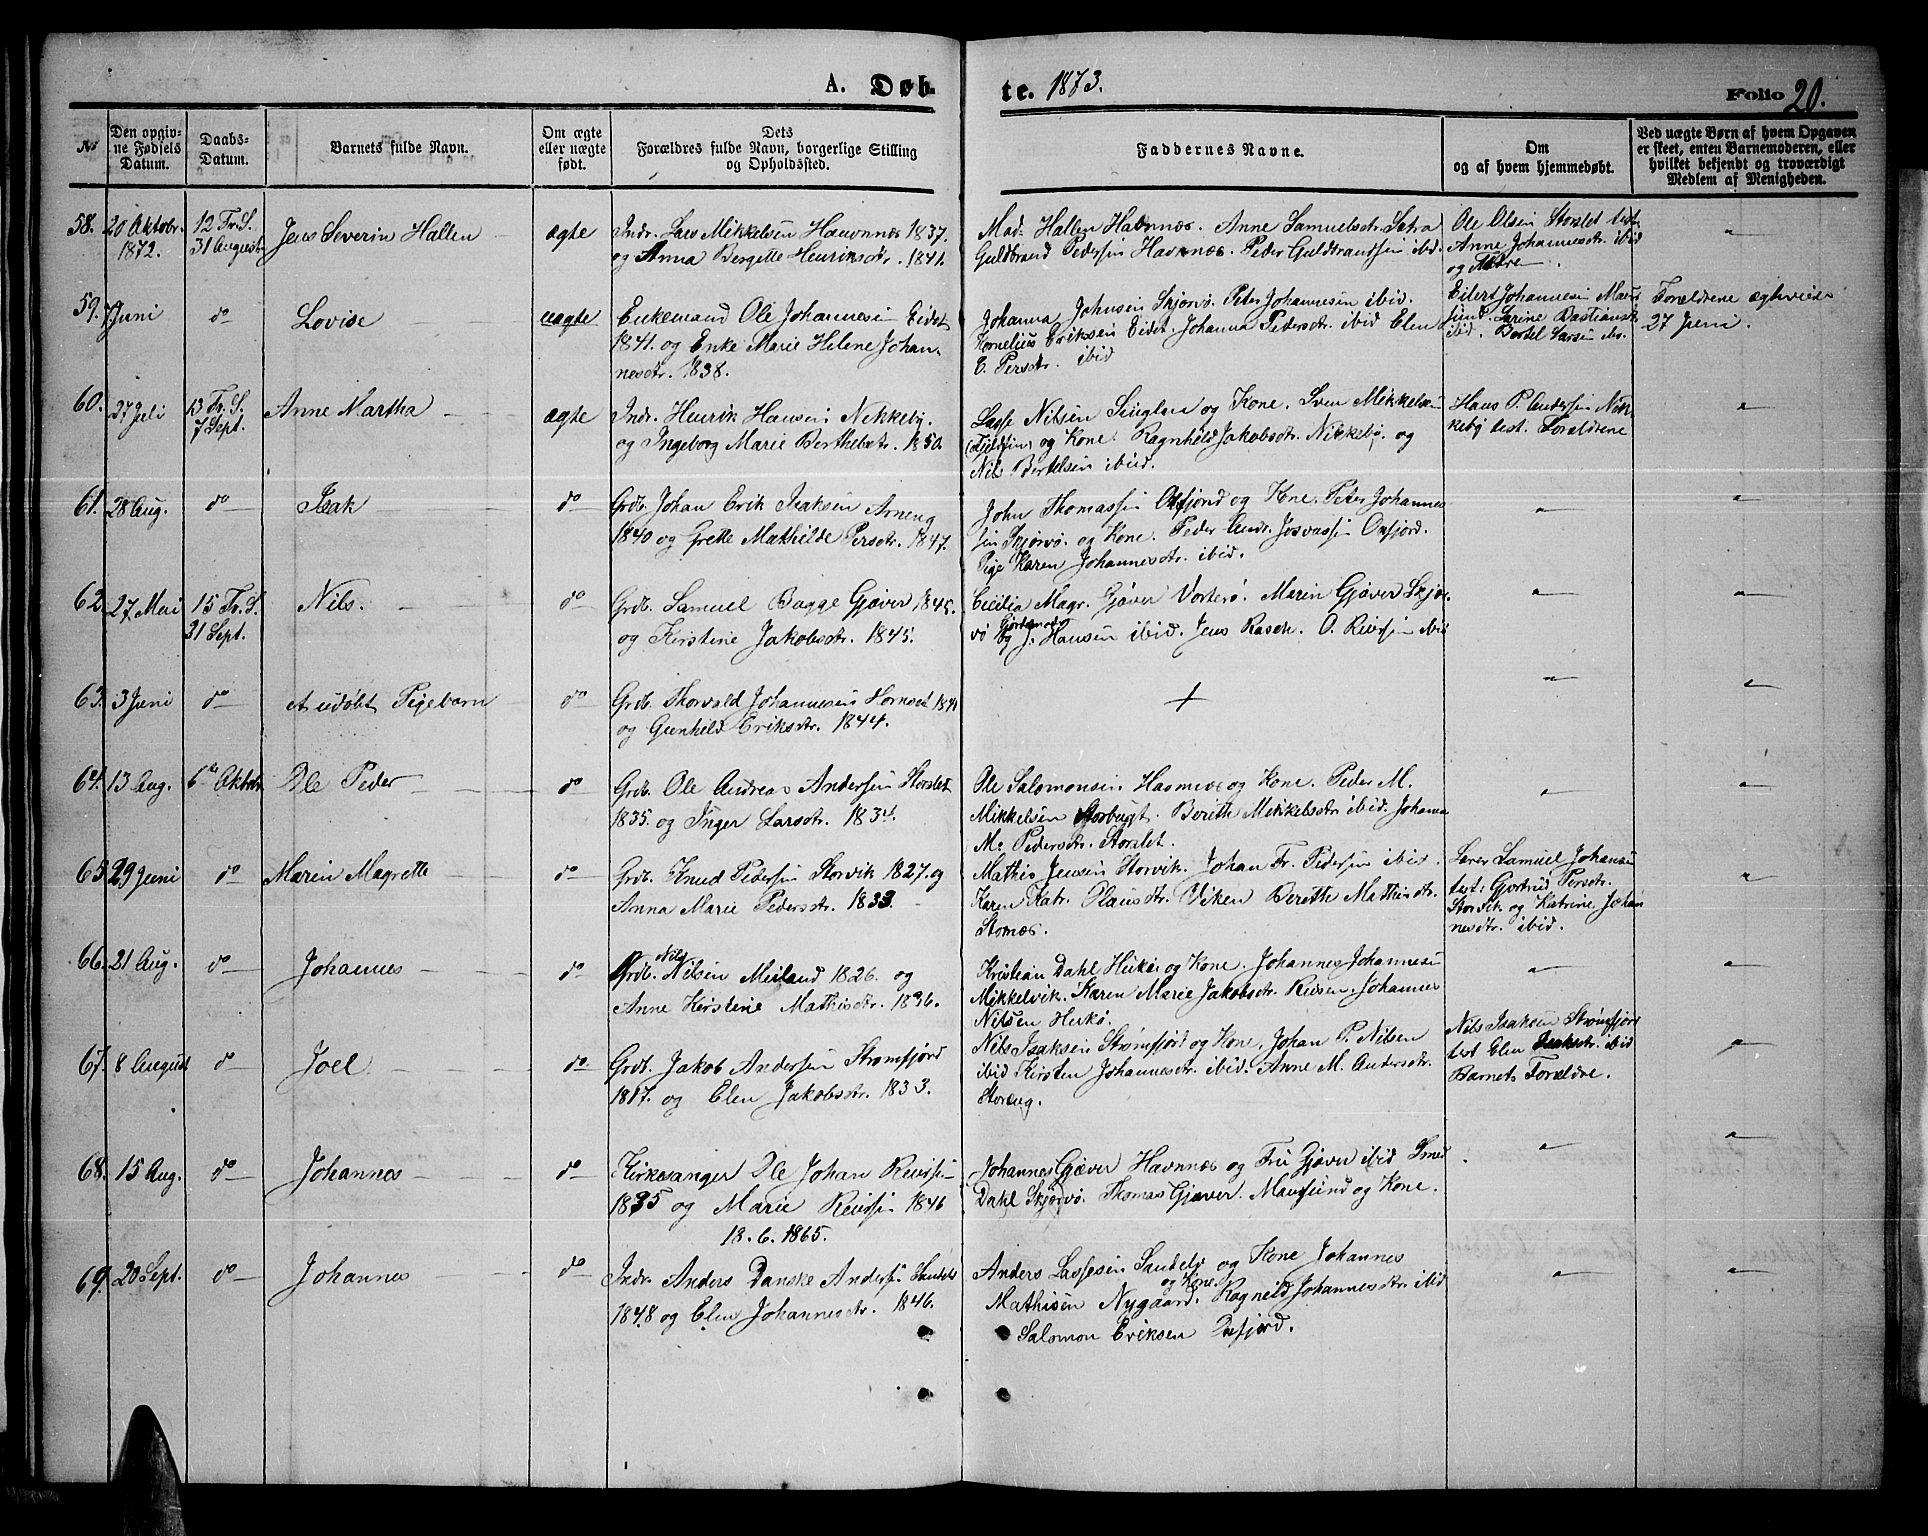 A. Døb-
te. 1873.
Folio 20.
No
Den opgiv-
ne Fødsels
Datum.
Daabs-
Datum.
Barnets fulde Navn.
Om ægte
eller uægte
født.
Dets
Forældres fulde Navn, borgerlige Stilling
og Opholdssted.
Faddernes Navne.
Om
og af hvem hjemmedøbt.
Ved uægte Børn af hvem Opgaven
er skeet, enten Barnemoderen, eller
hvilket bekjendt og troværdigt
Medlem af Menigheden.
58. 20 Oktobr.
1872.
12 Tr. S.
31 August
Jens Severin Hallen
ægte
Indr. Lars Mikkelsen Havnnæs 1837.
og Anna Bergitte Henriksdtr. 1841.
Mad. Hallen Havnnæs. Anne Samuelsdtr. Setra
Guldbrand Pedersen Havnnæs. Peder Guldbrandsen ibid.
Ole Olsen Storslet test.
Anne Johannesdtr. ibid
og Mdre.
"
59. 7 Juni
do
Lovise
uægte
Enkemand Ole Johannesen Eidet
1841. og Enke Marie Helene Johan-
nesdtr. 1838.
Johanna Johnsen Skjervø. Peter Johannesen ibid.
Kornelius Eriksen Eidet. Johanna Pedersdtr. ibid Elen
E. Persdtr. ibid
Eilert Johannesen Maur
sund. Serine Bastiansdtr.
ibid. Bertel Larsen ibid.
Forældrene
27 Juni.
60. 27 Juli
13 Tr. S.
7 Sept.
Anne Martha
ægte
Indr. Henrik Hansen Nikkeby.
og Ingeborg Marie Berthelsdtr. 1850.
Lasse Nilsen Singlen og Kone. Sven Mikkelsen
og Kone. Ragnhild Jakobsdtr. Nikkebÿ. og
Nils Bertelsen ibid.
Hans P. Andersen Nik-
kebÿ test. Forældrene
"
61. 28 Aug.
do
Isak
do
Grdb. Johan Erik Isaksen Arneng
1840 og Grette Mathilde Persdtr. 1847.
John Thomassen Oxfjord og Kone. Peter Johannes
sen Skjervø. og Kone. Peder Andr. Josvassen Oxfjord.
Pige Karen Johannesdtr. ibid.
"
"
62. 27 Mai
15 Tr. S.
21 Sept.
Nils.
do
Grdb. Samuel Bagge Gjæver 1845.
og Kirstine Jakobsdtr. 1845.
Cecilia Magr. Gjæver Vorterø. Marin Gjæver Skjer-
vø og J. Hansen ibid. Jens Rasch. O. Reiersen ibid
"
"
63. 3 Juni
do
et udøbt Pigebarn
do
Grdb. Thorvald Johannesen Hornset 1841
og Gunhild Eriksdtr. 1844.
+
"
"
64. 13 Aug.
6te Oktober
Ole Peder
do
Grdb. Ole Andreas Andersen Storslet
1835. og Inger Larsdtr. 1834.
Ole Salomonsen Havnnæs og Kone. Peder M.
Mikkelsen Storbugt. Berith Mikkelsdtr. ibid. Johanna
M. Pedersdtr. Storslet.
"
"
65. 29 Juni
do
Maren Magrette
do
Grdb. Knud Pedersen Storvik 1827. og
Anna Marie Pedersdtr. 1833.
Mathis Jensen Storvik. Johan Fr. Pedersen ibid.
Karen Katr. Olausdtr. Viken Berith Mathisdtr.
Stornæs.
Lærer Samuel Johansen
test: Gjertrud Persdtr.
Storvik og Katrine Johan
nesdtr. ibid.
"
66. 21 Aug.
do
Johannes
do
Grdb. Nils Nilsen Meiland 1826. og
Anne Kirstine Mathisdtr. 1836.
Kristian Dahl Hukø og Kone. Johannes Johannesen
Mikkelvik. Karen Marie Jakobsdtr. Reisen. Johannes
Nilsen Hukø.
"
"
67. 8 August
do
Joel
do
Grdb. Jakob Andersen Strømfjord
1817. og Elen Jakobsdtr. 1833.
Nils Isaksen Strømfjord og Kone. Johan P. Nilsen
ibid Kirsten Johannesdtr. ibid. Anne M. Andersdtr.
Storeng.
Nils Isaksen Strømfjord
test Elen Isaksdtr. ibid
Barnets Forældre.
"
68. 15 Aug.
do
Johannes
do
Kirkesanger Ole Johan Reiersen
1835 og Marie Reiersen 1846
13. 6. 1865.
Johannes Gjæver Havnnæs og Fru Gjæver ibid Smed
Dahl Skjervø. Thomas Gjæver. Maursund og Kone.
"
"
69. 20 Sept.
do
Johannes
do
Indr. Anders Danske Andersen
1848 og Elen Johannesdtr. 1846.
Anders Lassesen Sandelv og Kone Johannes
Mathisen Nygaard. og Kone. Ragnild Johannesdtr. ibid
Salomon Eriksen Oxfjord.
"
"